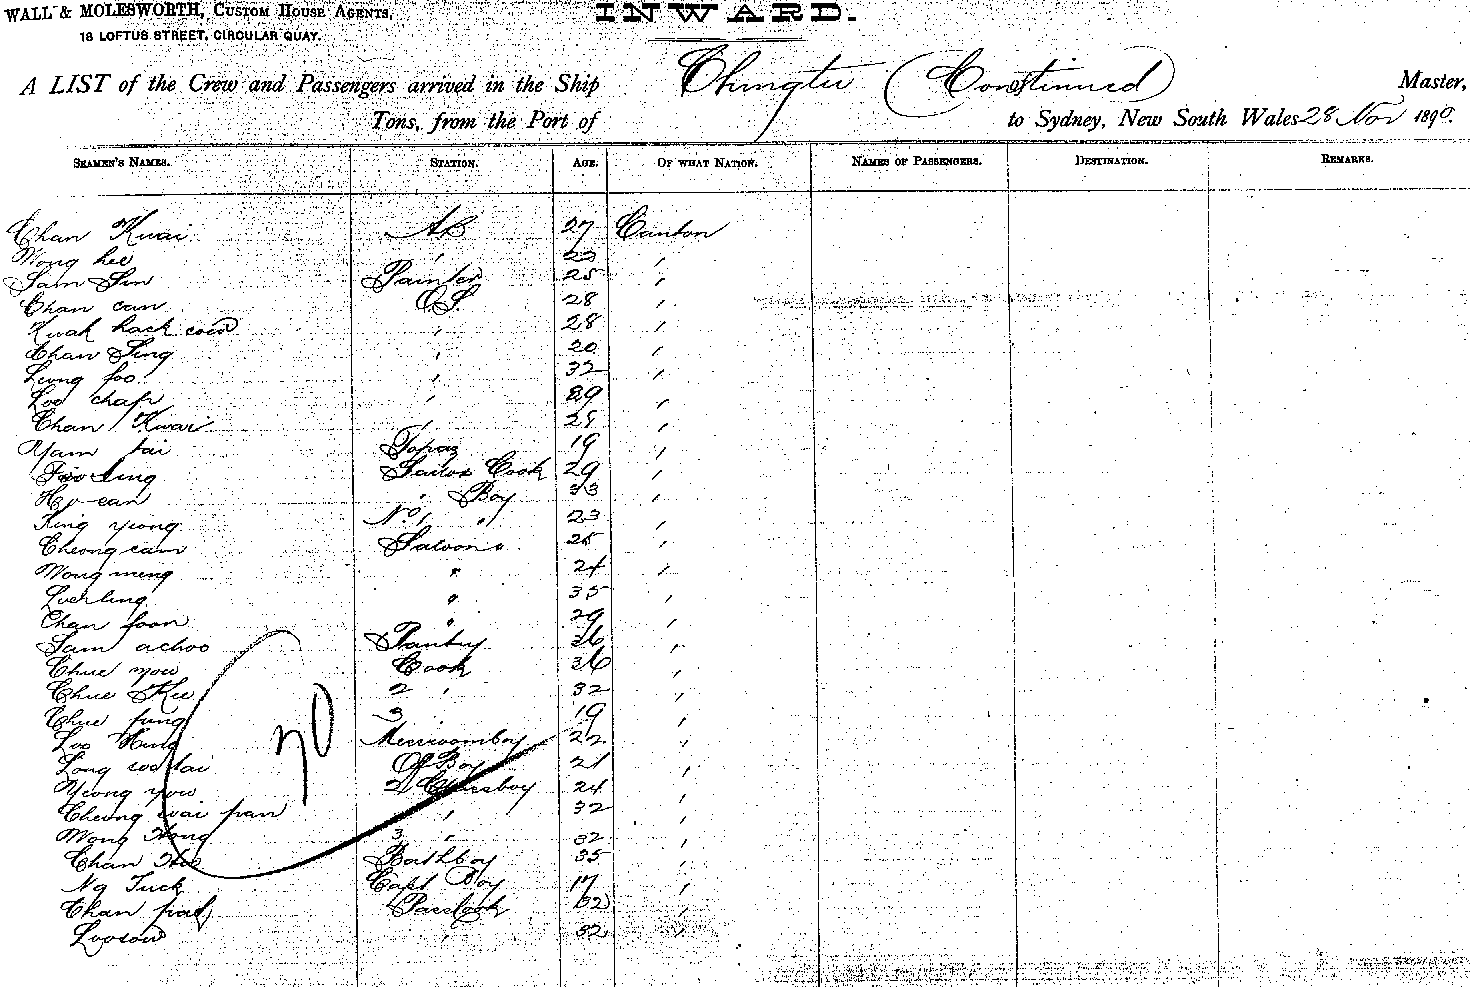 WALL & MOLESWORTH, CUSTOM HOUSE AGENTS,
18 LOFTUS STREET, CIRCULAR QUAY.
INWARD.
A LIST of the Crew and Passengers arrived in the Ship Chingtu (Continued) Master,
Tons, from the Port of to Sydney, New South Wales 28 Nov 1890.
SEAMEN'S NAMES. STATION. AGE. OF WHAT NATION. NAMES OF PASSENGERS. DESTINATION. REMARKS.
Chan Kwai AB 27 Canton
Wong hee " 23 "
Sam Sin Painter 25 "
Chan can O.S. 28 "
Kwak hack " 28 "
Chan Sing " 20 "
Leung foo " 32 "
Loo chap " 29 "
Chan Kwai " 28 "
Yam tai Topaz 19 "
Foo Ling Sailor Cook 29 "
Ho can " Boy 33 "
King yeong No 1 " 23 "
Cheong cam Saloon " 25 "
Wong meng " 24 "
Luerling " 35 "
Chan foon " 29 "
Sam achoo Pantry 36 "
Chue you Cook 36 "
Chue Kee 2 " 32 "
Chue fung 3 19 "
Loo Hung Messroomboy 22 "
Long tai Of Boy 21 "
Yeong you 2 Classboy 24 "
Cheong wai pan " 32 "
Wong Hong 3 " 32 "
Chan Bathboy 35 "
Ng Tuck Capt Boy 17 "
Chan Pass Cook 32 "
Loosow " 32 "
70